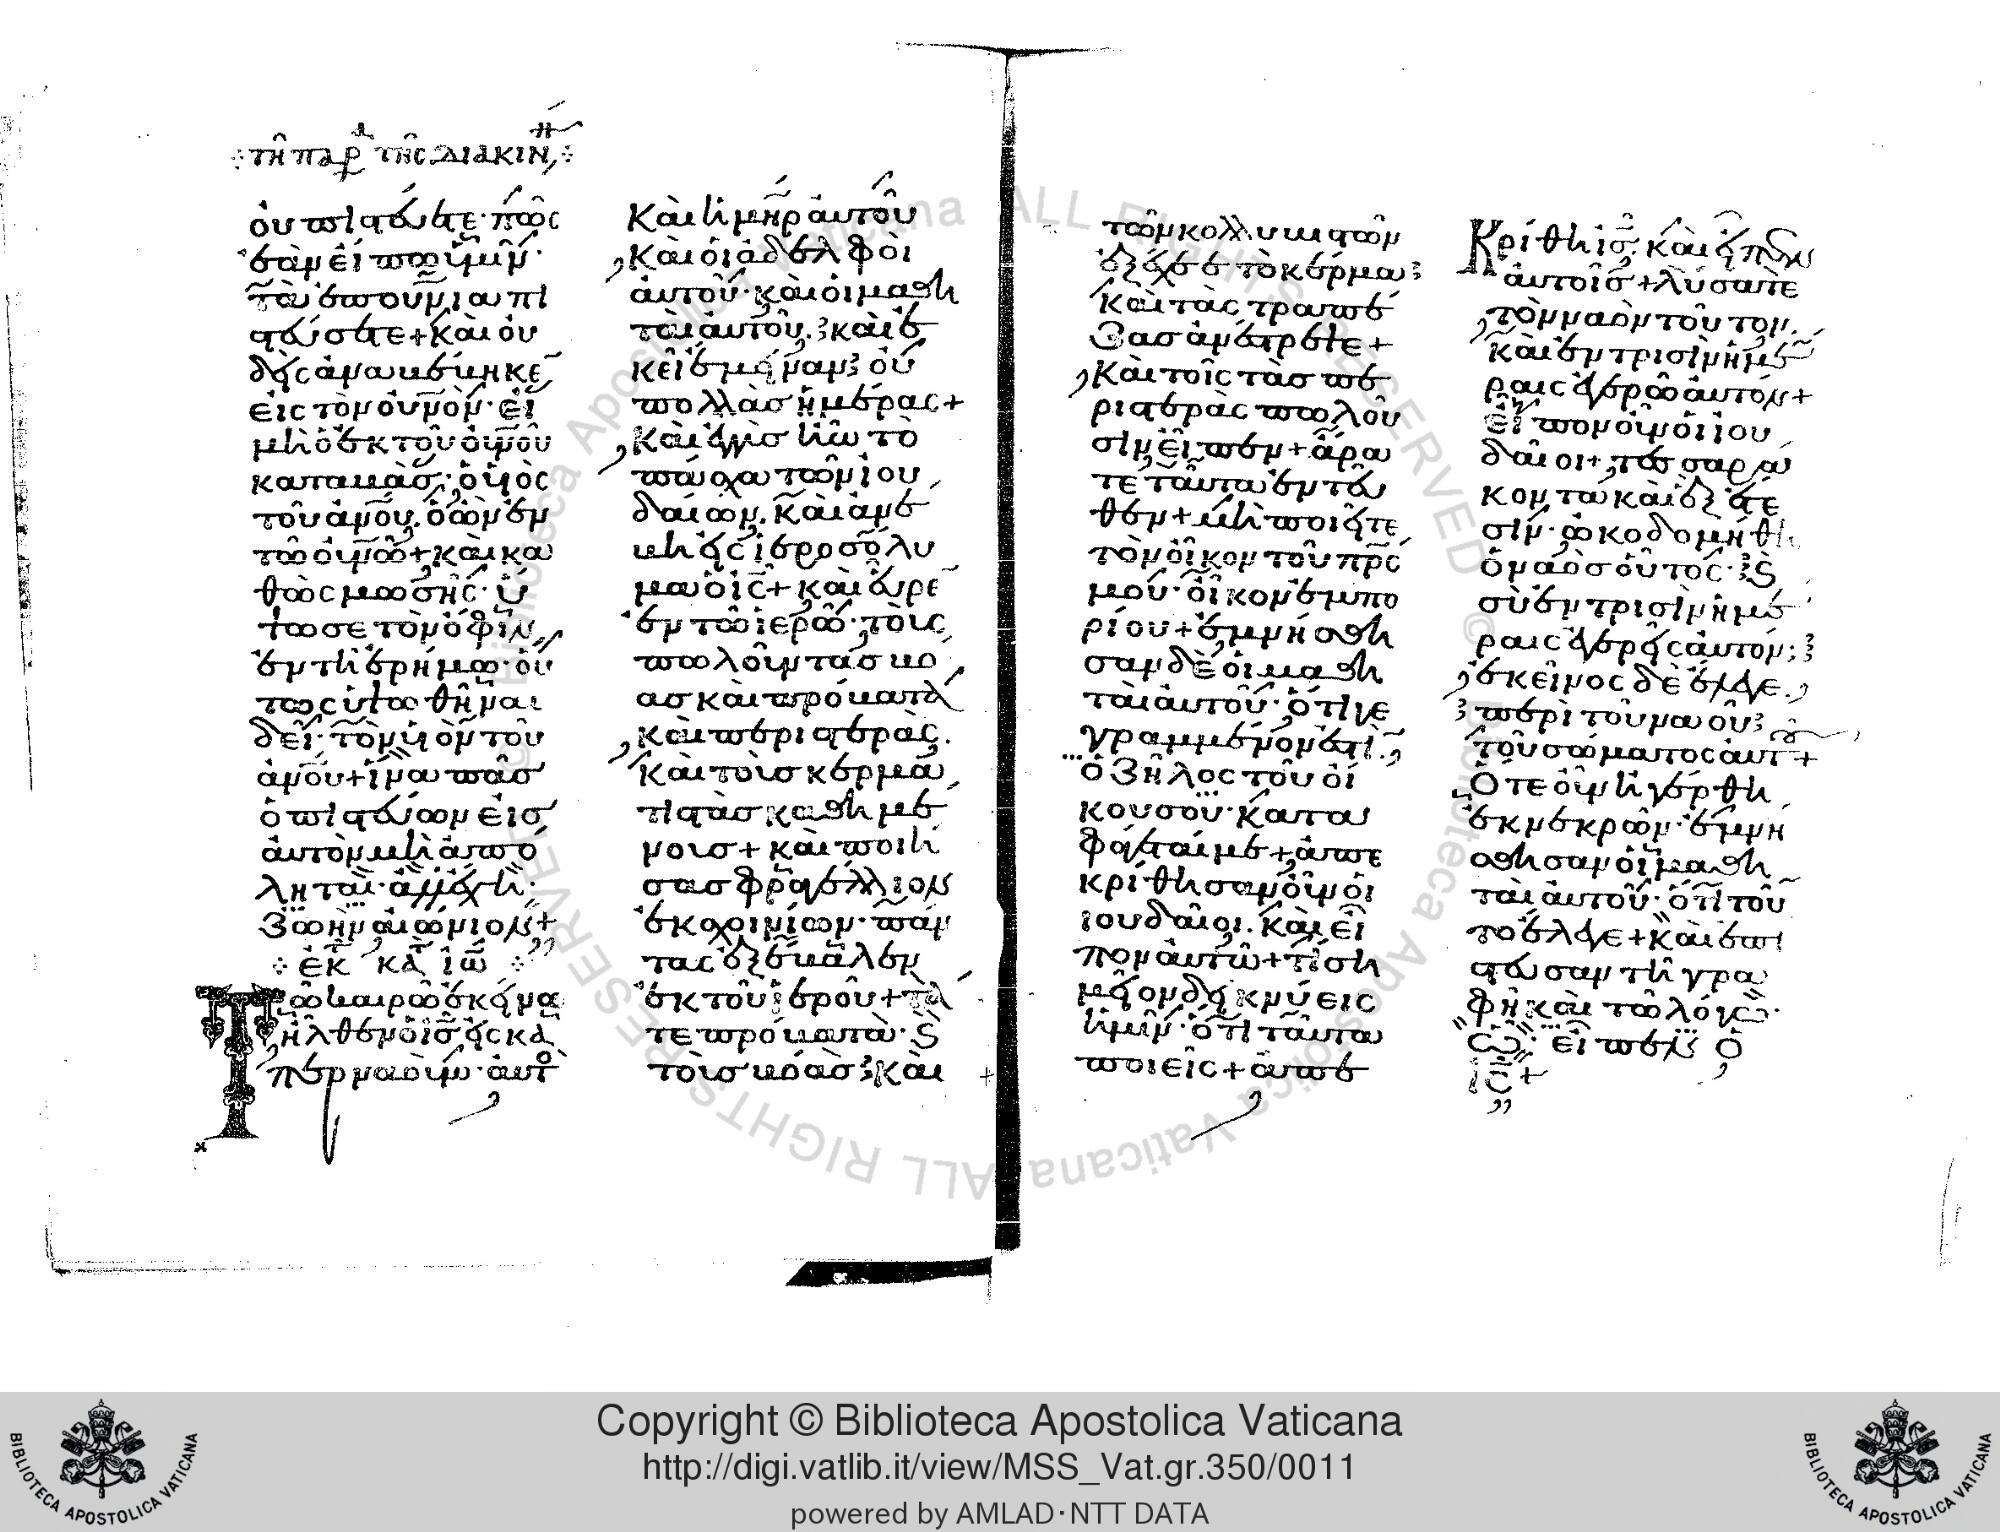 τῆ παρ τῆς διακιν
οὐ πιστεύετε· πῶς
ἐὰν εἴπω ὑμῖν
τὰ ἐπουνια πι
στεύσετε + καὶ οὐ
δεὶς ἀναβέβηκε
εἰς τὸν οὐνον· εἰ
μὴ ὁ ἐκ τοῦ οὐνοῦ
καταβὰς· ὁ υἱὸς
τοῦ ἀνου. ὁ ὢν ἐν
τῶ οὐνῶ + καὶ κα
θὼς μωσῆς· ὕ
ψωσε τὸν ὄφιν
ἐν τῆ ἐρήμω· οὕ
τως ὑψωθῆναι
δεῖ· τὸν υἱὸν τοῦ
ἀνου + ἵνα πᾶσ
ὁ πιστεύων εἰσ
αὐτὸν μὴ ἀπό
ληται· ἀλλ' ἔχη
ζωὴν αἰώνιον +
ἐκ κατ ἰω
Τῶ καιρῶ ἐκείνω
ἦλθεν ὁ ις εἰς κα
περναούμ· αὐτὸ
καὶ ἡ μηρ αὐτοῦ
καὶ οἱ ἀδελφοὶ
αὐτοῦ· καὶ οἱ μαθη
ταὶ αὐτοῦ. καὶ ἐ
κεῖ ἔμειναν οὐ
πολλὰσ ἡμέρας +
καὶ ἐγγὺσ ἦν τὸ
πάσχα τῶν ἰου
δαίων. καὶ ἀνέ
βη εἰς ἱεροσόλυ
μα ὁ ις + καὶ εὗρε
ἐν τῶ ἱερῶ· τοὺς
πωλοῦντάσ βό
ασ καὶ πρόβατα
καὶ περιστερὰς.
καὶ τοὺσ κερμα
τιστὰσ καθημέ
νουσ + καὶ ποιή
σασ φραγέλλιον
ἐκ σχοινίων· πάν
τας ἐξέβαλεν
ἐκ τοῦ ἱεροῦ + τά
τε πρόβατα· καὶ
τοὺσ βόασ καὶ
τῶν κολλυβιστῶν
ἐξέχεε τὸ κέρμα
καὶ τὰς τραπέ
ζασ ἀνέστρεψε +
καὶ τοῖς τὰσ πε
ριστερὰς πωλοῦ
σιν εἶπεν + ἄρα
τε ταῦτα ἐντεῦ
θεν + μὴ ποιεῖτε
τὸν οἶκον τοῦ πρς
μου· οἶκον ἐμπο
ρίου + ἐμνήσθη
σαν δὲ οἱ μαθη
ταὶ αὐτοῦ· ὅτι γε
γραμμένον ἐστὶ.
ὁ ζῆλος τοῦ οἴ
κου σου· κατα
φάγεταί με + ἀπε
κρίθησαν οὖν οἱ
ιουδαῖοι. καὶ εἶ
πον αὐτῶ + τί ση
μεῖον δεικνύεις
ἡμῖν· ὅτι ταῦτα
ποιεῖς + ἀπε
κρίθη ις. καὶ εἶπεν
αὐτοῖσ + λύσατε
τὸν ναὸν τοῦτον.
καὶ ἐν τρισὶν ἡμέ
ραις ἐγερῶ αὐτόν +
εἶπον οὖν οἱ ιου
δαῖοι + τεσσαρά
κοντα καὶ ἓξ ἔτε
σιν· ὠκοδομήθη
ὁ ναὸσ οὗτος· καὶ
σὺ ἐν τρισὶν ἡμέ
ραις ἐγερεῖς αὐτόν;
ἐκεῖνος δὲ ἔλεγε.
περὶ τοῦ ναοῦ
τοῦ σώματος αὐτ +
Ὅτε οὖν ἠγέρθη
ἐκ νεκρῶν· ἐμνή
σθησαν οἱ μαθη
ταὶ αὐτοῦ· ὅτι τοῦ
το ἔλεγε + καὶ ἐπί
στευσαν τῆ γρα
φῆ καὶ τῶ λόγω·
ὧ· εἶπεν ὁ
ις +
Copyright © Biblioteca Apostolica Vaticana
http://digi.vatlib.it/view/MSS_Vat.gr.350/0011
powered by AMLAD·NTT DATA
BIBLIOTECA APOSTOLICA VATICANA
BIBLIOTECA APOSTOLICA VATICANA